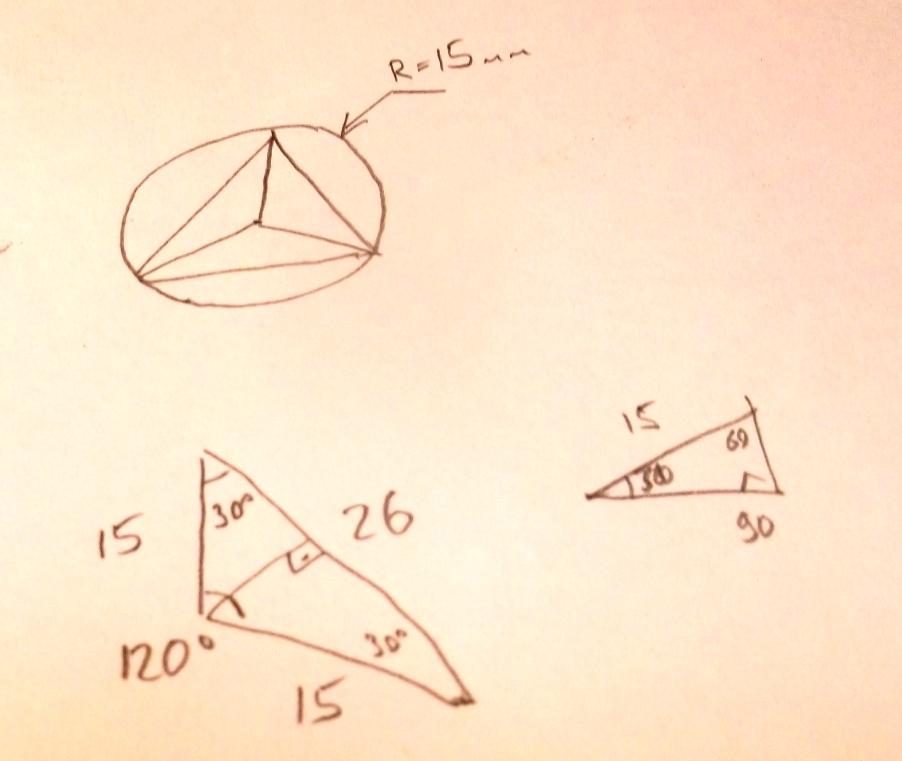 R=15mm
15
30°
26
120°
30°
15
15
30
60
90